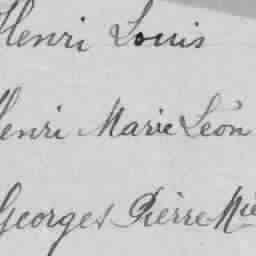 Henri Louis
Henri Marie Léon
Georges Pierre